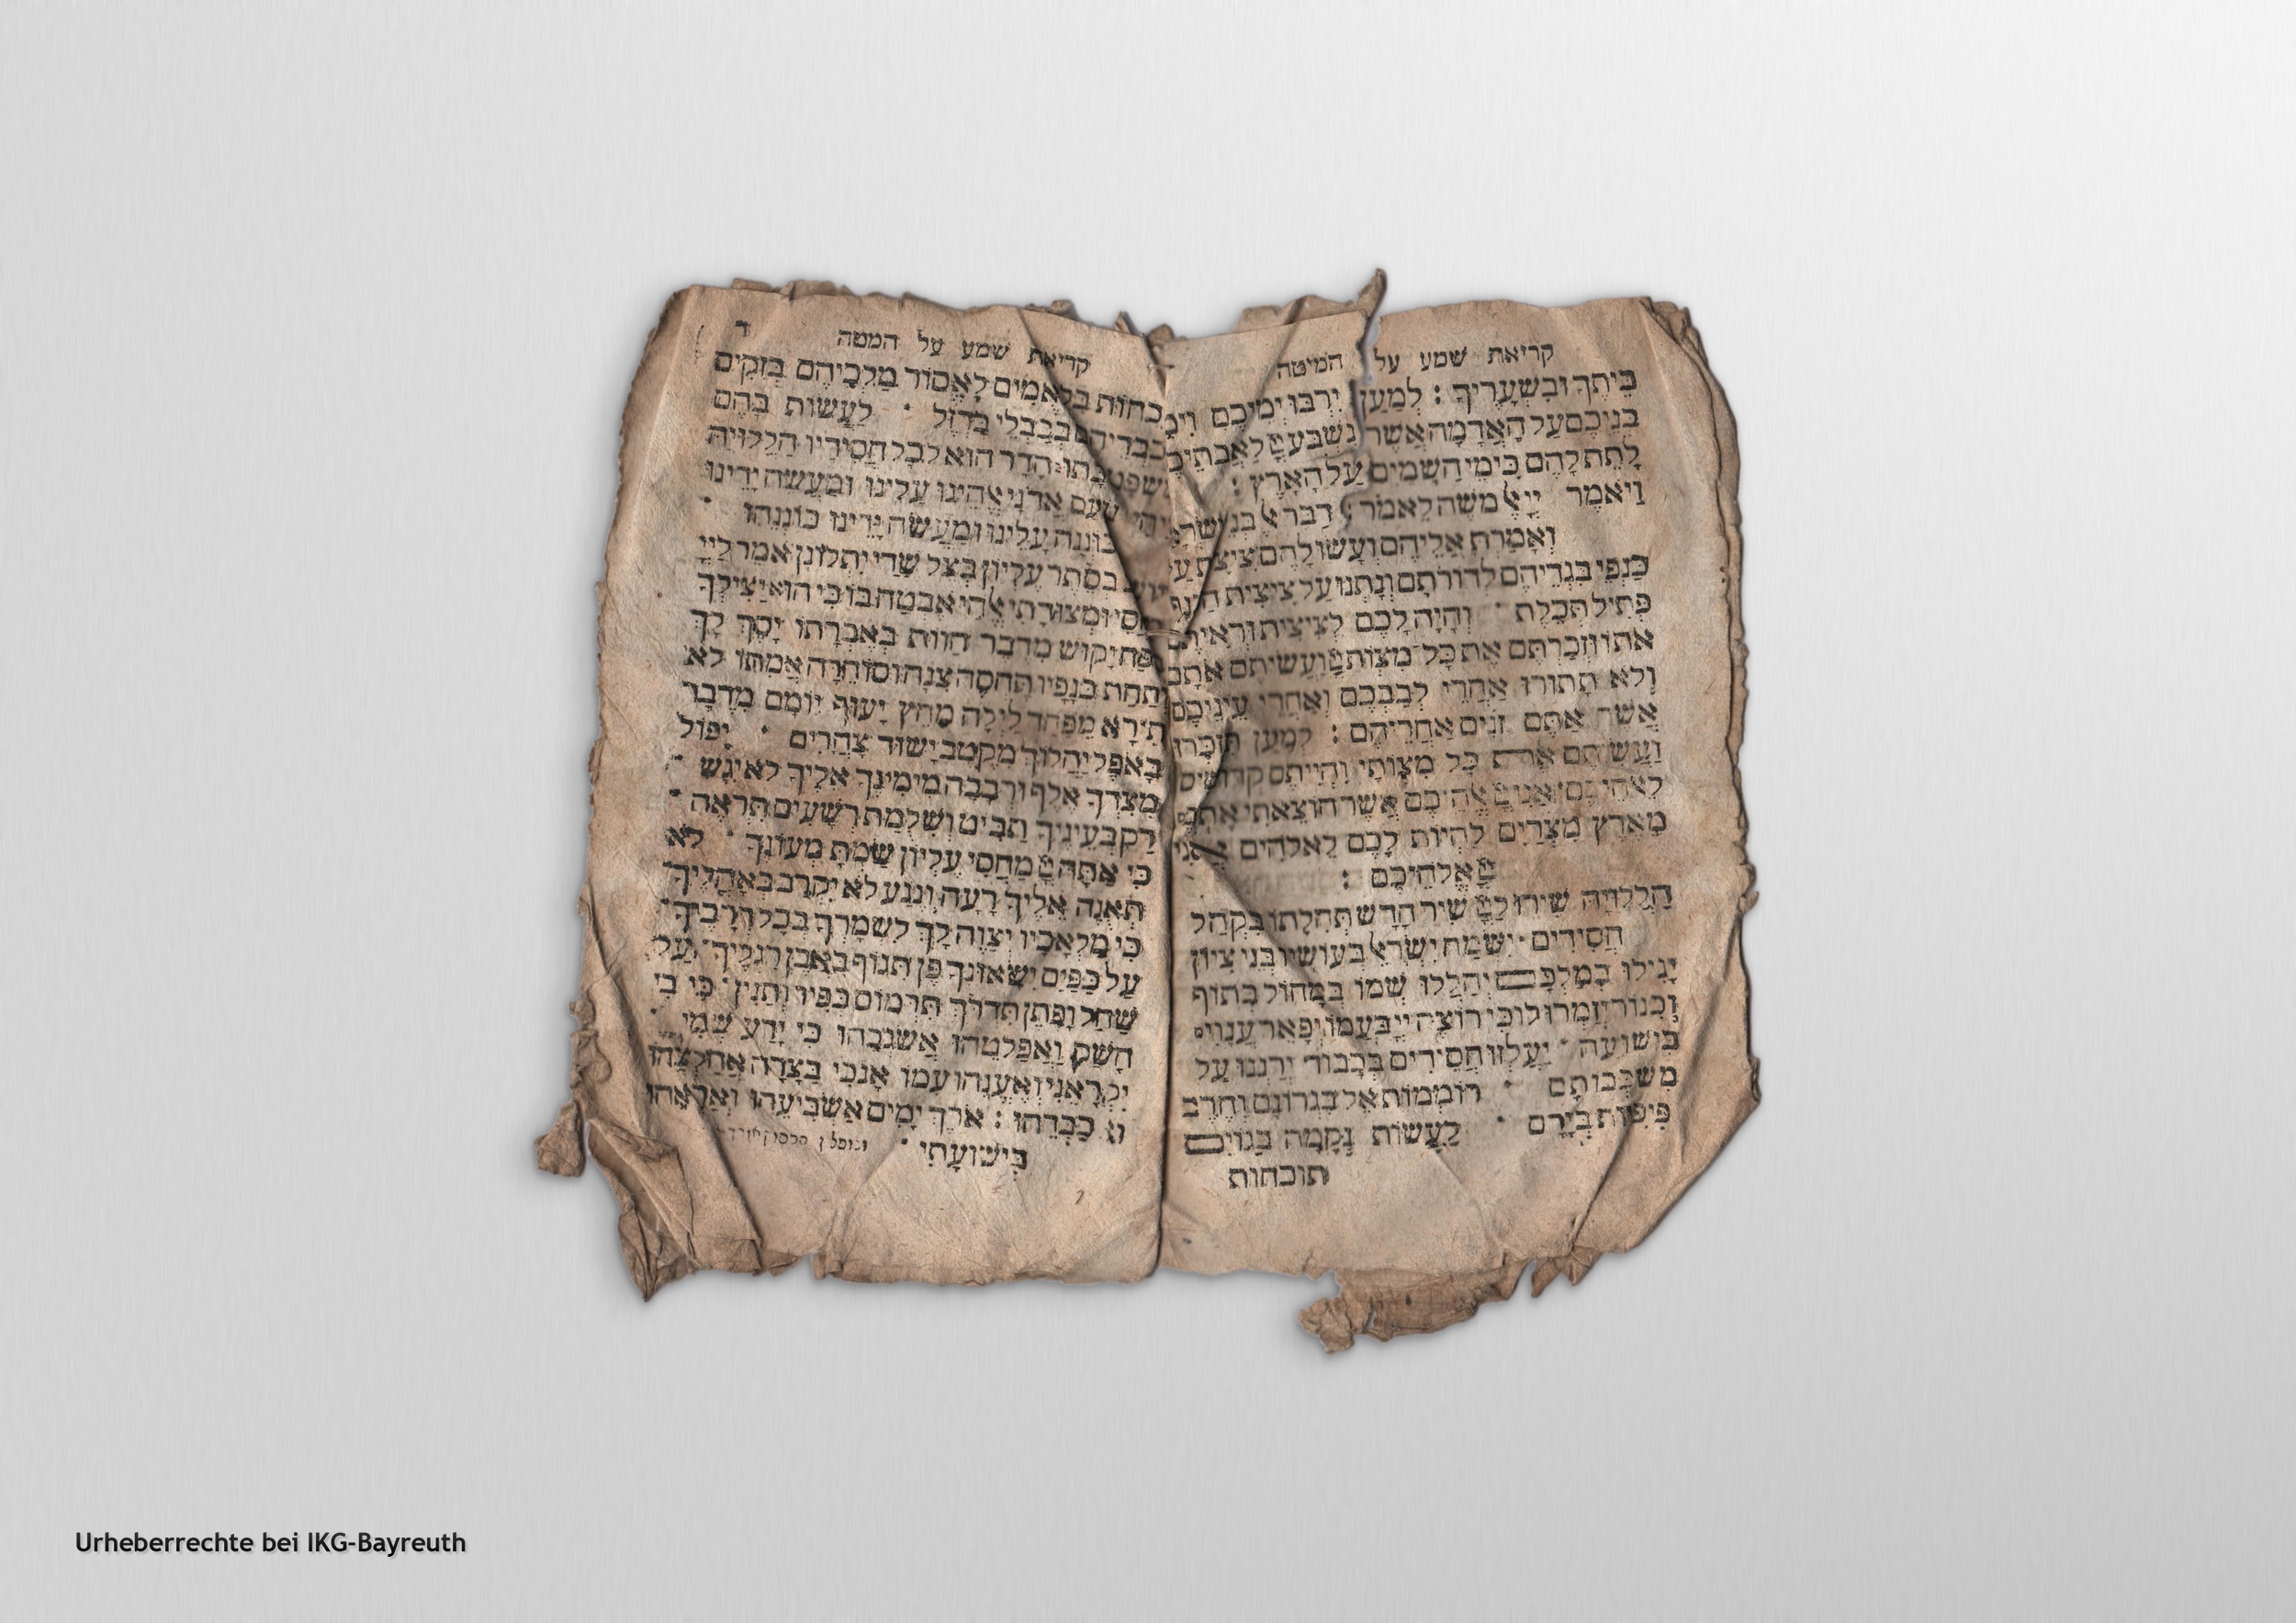 קריאת שמע על המיטה
בֵּיתֶךָ וּבִשְׁעָרֶיךָ : לְמַעַן יִרְבּוּ יְמֵיכֶם וִימֵ
בְנֵיכֶם עַל הָאֲדָמָה אֲשֶׁר נִשְׁבַּע לַאֲבֹתֵיכֶם
לָתֵת לָהֶם כִּימֵי הַשָּׁמַיִם עַל הָאָרֶץ :
וַיֹּאמֶר יְיָ אֶל משֶׁה לֵּאמֹר : דַּבֵּר אֶל בְּנֵי יִשְׂרָאֵל
וְאָמַרְתָּ אֲלֵיהֶם וְעָשׂוּ לָהֶם צִיצִת עַל
כַּנְפֵי בִגְדֵיהֶם לְדוֹרֹתָם וְנָתְנוּ עַל צִיצִית הַכָּנָף
פְּתִיל תְּכֵלֶת · וְהָיָה לָכֶם לְצִיצִית וּרְאִיתֶם
אֹתוֹ וּזְכַרְתֶּם אֶת כָּל מִצְוֹת יְיָ וַעֲשִׂיתֶם אֹתָם
וְלֹא תָתוּרוּ אַחֲרֵי לְבַבְכֶם וְאַחֲרֵי עֵינֵיכֶם
אֲשֶׁר אַתֶּם זֹנִים אַחֲרֵיהֶם : לְמַעַן תִּזְכְּרוּ
וַעֲשִׂיתֶם אֶת כָּל מִצְוֹתַי וִהְיִיתֶם קְדוֹשִׁים
לֵאלֹהֵיכֶם אֲנִי יְיָ אֱלֹהֵיכֶם אֲשֶׁר הוֹצֵאתִי אֶתְכֶם
מֵאֶרֶץ מִצְרַיִם לִהְיוֹת לָכֶם לֵאלֹהִים אֲנִי
יְיָ אֱלֹהֵיכֶם :
הַלְלוּיָהּ שִׁירוּ לַיְיָ שִׁיר חָדָשׁ תְּהִלָּתוֹ בִּקְהַל
חֲסִידִים · יִשְׂמַח יִשְׂרָאֵל בְּעוֹשָׂיו בְּנֵי צִיּוֹן
יָגִילוּ בְמַלְכָּם יְהַלְלוּ שְׁמוֹ בְמָחוֹל בְּתוֹף
וְכִנּוֹר יְזַמְּרוּ לוֹ כִּי רוֹצֶה יְיָ בְּעַמּוֹ יְפָאֵר עֲנָוִים
בִּישׁוּעָה · יַעְלְזוּ חֲסִידִים בְּכָבוֹד יְרַנְּנוּ עַל
מִשְׁכְּבוֹתָם · רוֹמְמוֹת אֵל בִּגְרוֹנָם וְחֶרֶב
פִּיפִיּוֹת בְּיָדָם · לַעֲשׂוֹת נְקָמָה בַּגּוֹיִם
תוכחות
קריאת שמע על המטה ד
תּוֹכֵחוֹת בַּלְאֻמִּים לֶאְסוֹר מַלְכֵיהֶם בְּזִקִּים
וְנִכְבְּדֵיהֶם בְּכַבְלֵי בַרְזֶל · לַעֲשׂוֹת בָּהֶם
מִשְׁפָּט כָּתוּב הָדָר הוּא לְכָל חֲסִידָיו הַלְלוּיָהּ
וִיהִי נֹעַם אֲדֹנָי אֱלֹהֵינוּ עָלֵינוּ וּמַעֲשֵׂה יָדֵינוּ
כּוֹנְנָה עָלֵינוּ וּמַעֲשֵׂה יָדֵינוּ כּוֹנְנֵהוּ ·
יוֹשֵׁב בְּסֵתֶר עֶלְיוֹן בְּצֵל שַׁדַּי יִתְלוֹנָן אֹמַר לַייָ
מַחְסִי וּמְצוּדָתִי אֱלֹהַי אֶבְטַח בּוֹ כִּי הוּא יַצִּילְךָ
מִפַּח יָקוּשׁ מִדֶּבֶר הַוּוֹת בְּאֶבְרָתוֹ יָסֶךְ לָךְ
וְתַחַת כְּנָפָיו תֶּחְסֶה צִנָּה וְסוֹחֵרָה אֲמִתּוֹ לֹא
תִירָא מִפַּחַד לָיְלָה מֵחֵץ יָעוּף יוֹמָם מִדֶּבֶר
בָּאֹפֶל יַהֲלוֹךְ מִקֶּטֶב יָשׁוּד צָהֳרָיִם · יִפּוֹל
מִצִּדְּךָ אֶלֶף וּרְבָבָה מִימִינֶךָ אֵלֶיךָ לֹא יִגָּשׁ ·
רַק בְּעֵינֶיךָ תַבִּיט וְשִׁלֻּמַת רְשָׁעִים תִּרְאֶה ·
כִּי אַתָּה יְיָ מַחְסִי עֶלְיוֹן שַׂמְתָּ מְעוֹנֶךָ · לֹא
תְאֻנֶּה אֵלֶיךָ רָעָה וְנֶגַע לֹא יִקְרַב בְּאָהֳלֶיךָ ·
כִּי מַלְאָכָיו יְצַוֶּה לָּךְ לִשְׁמָרְךָ בְּכָל דְּרָכֶיךָ ·
עַל כַּפַּיִם יִשָּׂאוּנְךָ פֶּן תִּגּוֹף בָּאֶבֶן רַגְלֶיךָ · עַל
שַׁחַל וָפֶתֶן תִּדְרוֹךְ תִּרְמוֹס כְּפִיר וְתַנִּין · כִּי בִי
חָשַׁק וַאֲפַלְּטֵהוּ אֲשַׂגְּבֵהוּ כִּי יָדַע שְׁמִי ·
יִקְרָאֵנִי וְאֶעֱנֵהוּ עִמּוֹ אָנֹכִי בְצָרָה אֲחַלְּצֵהוּ
וַאֲכַבְּדֵהוּ : אֹרֶךְ יָמִים אַשְׂבִּיעֵהוּ וְאַרְאֵהוּ
בִּישׁוּעָתִי ·
Urheberrechte bei IKG-Bayreuth